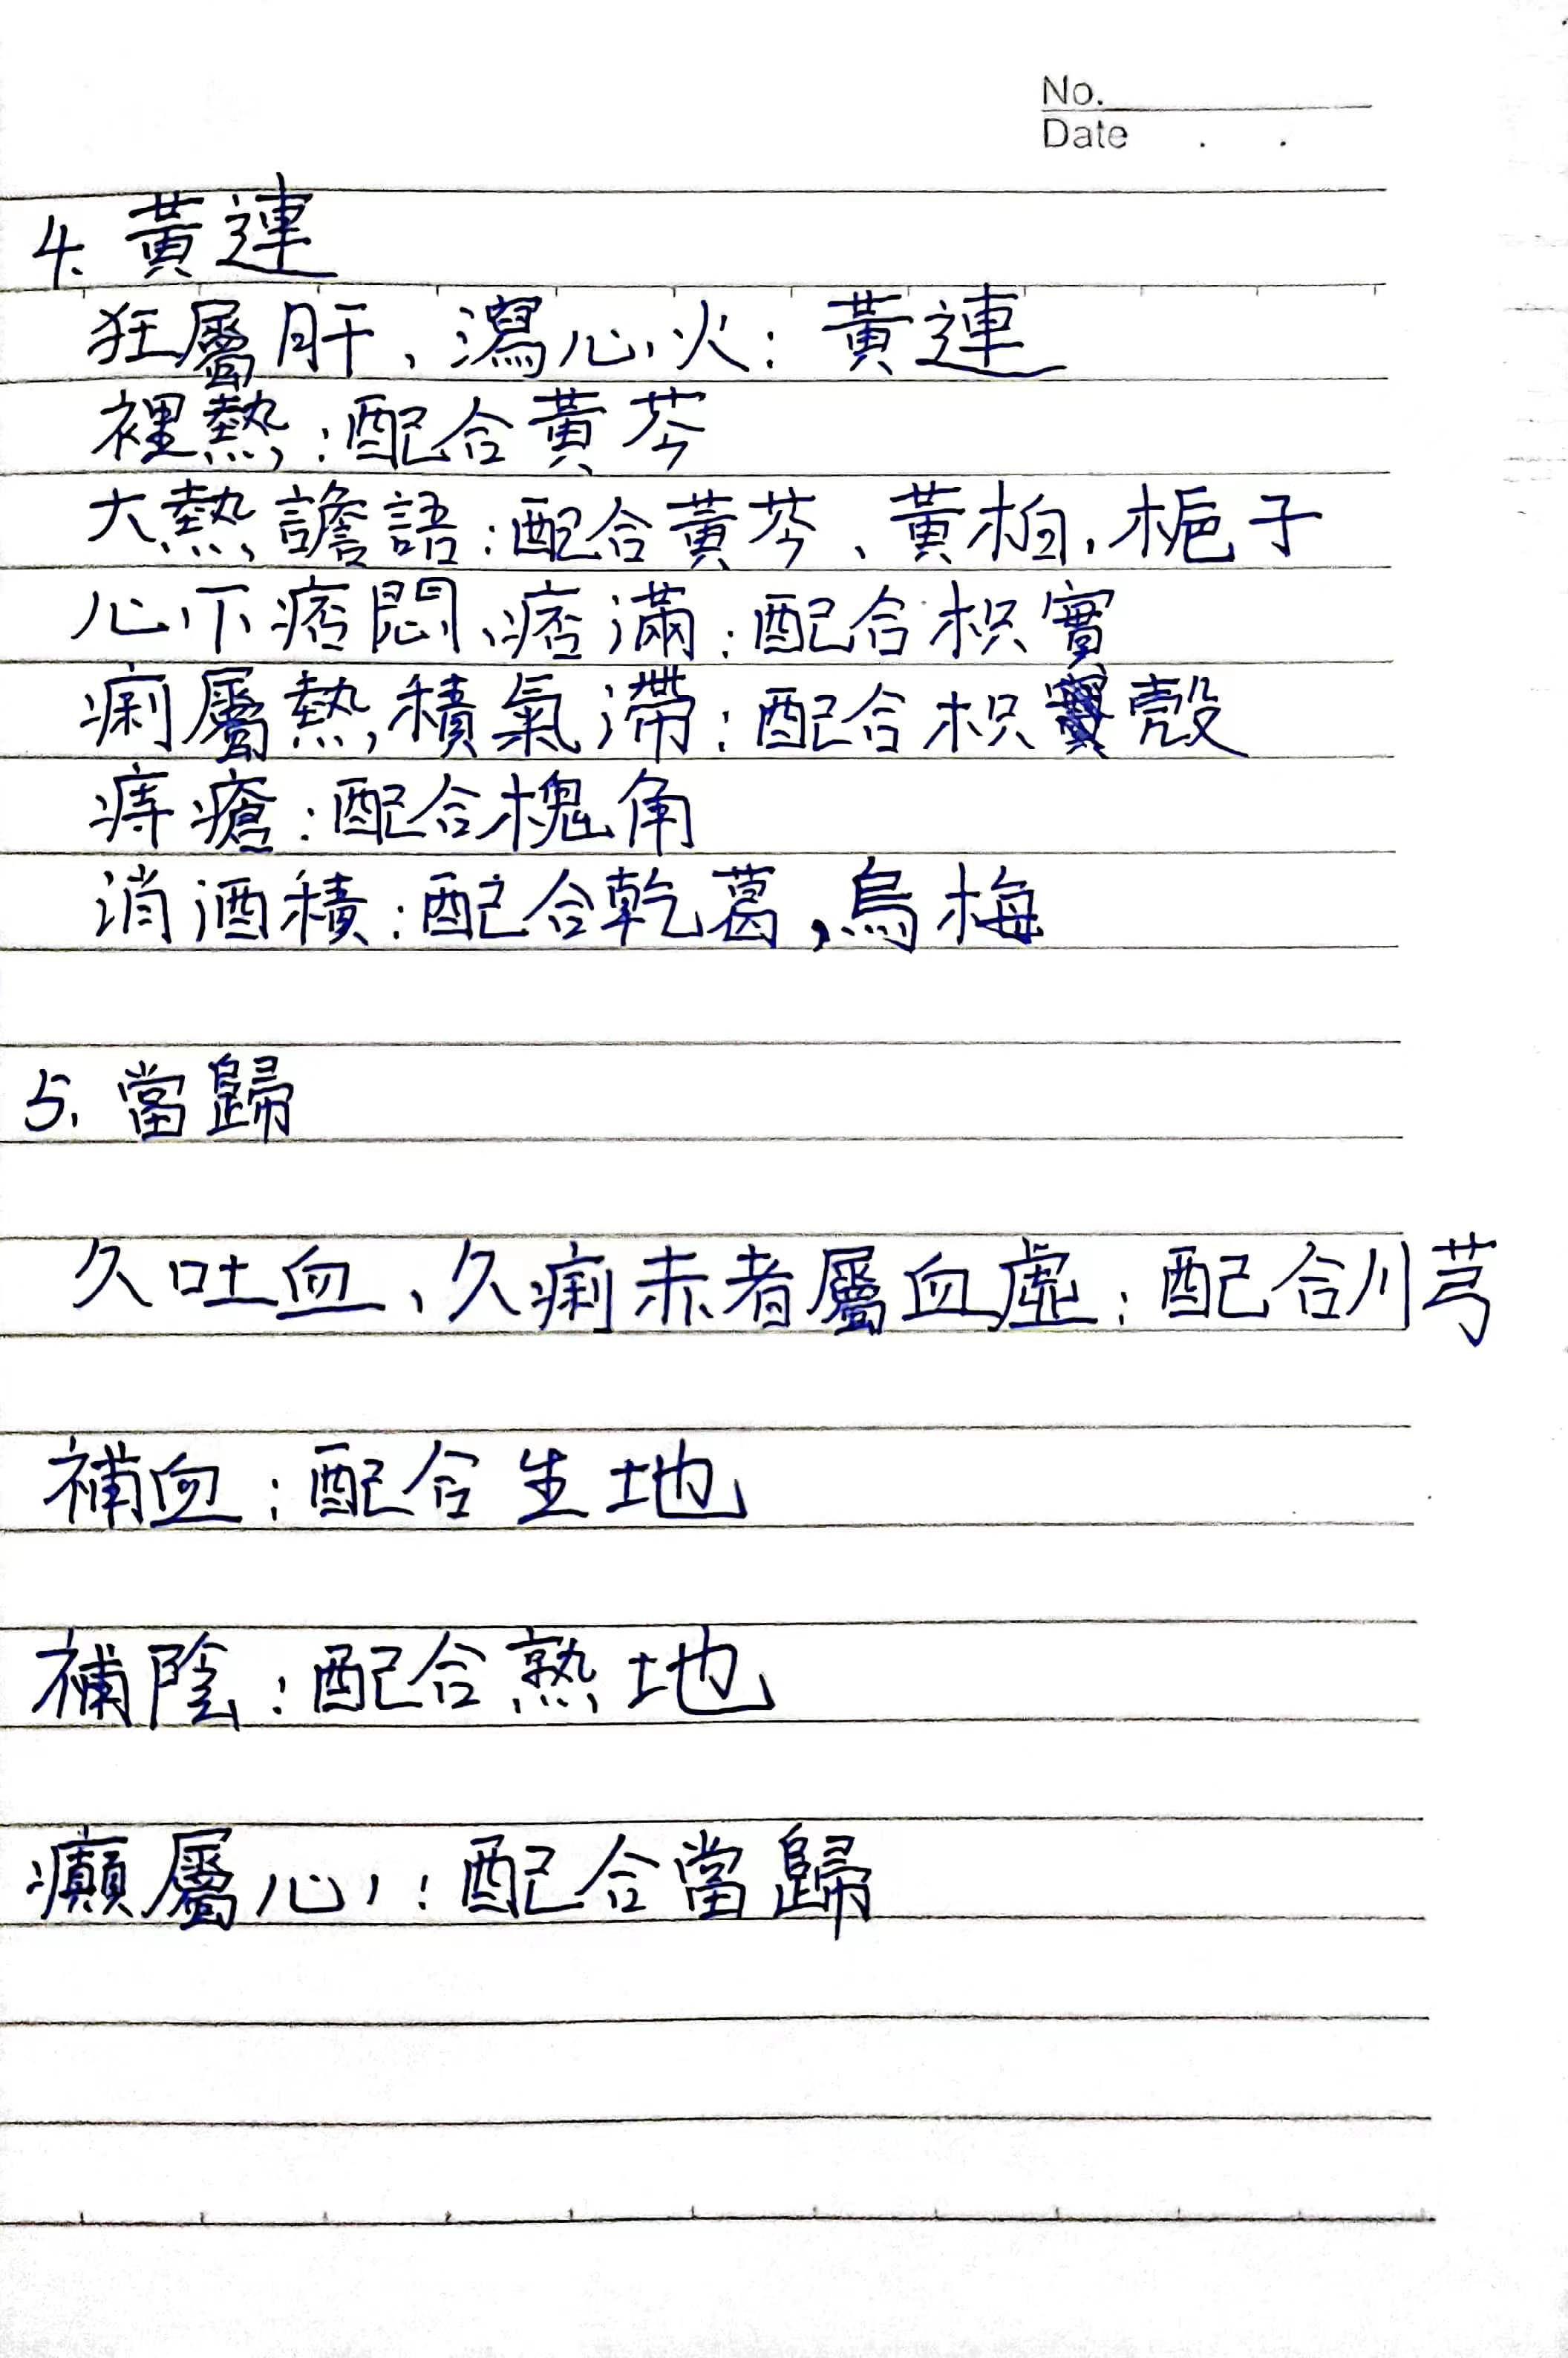 No.
Date . .
4. 黃連
狂屬肝、瀉心火：黃連
裡熱：配合黃芩
大熱譫語：配合黃芩、黃柏，梔子
心下痞悶、痞滿：配合枳實
痢屬熱，積氣滯：配合枳殼
痔瘡：配合槐角
消酒積：配合乾葛，烏梅
5. 當歸
久吐血、久痢赤者屬血虛：配合川芎
補血：配合生地
補陰：配合熟地
癲屬心：配合當歸